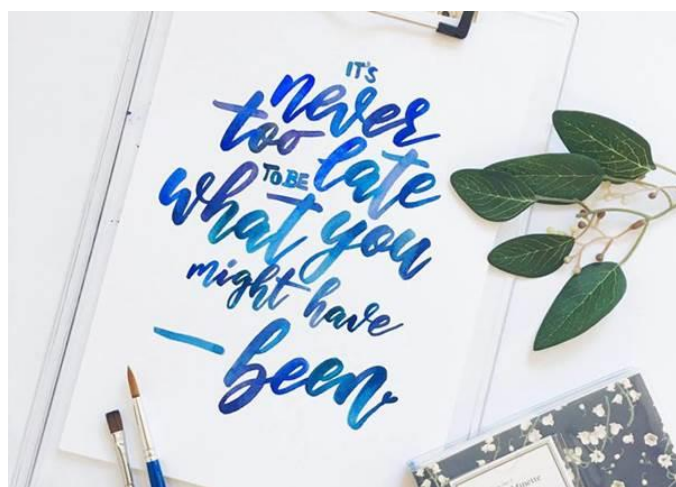 IT'S
never
too late
TO BE
what you
might have
been